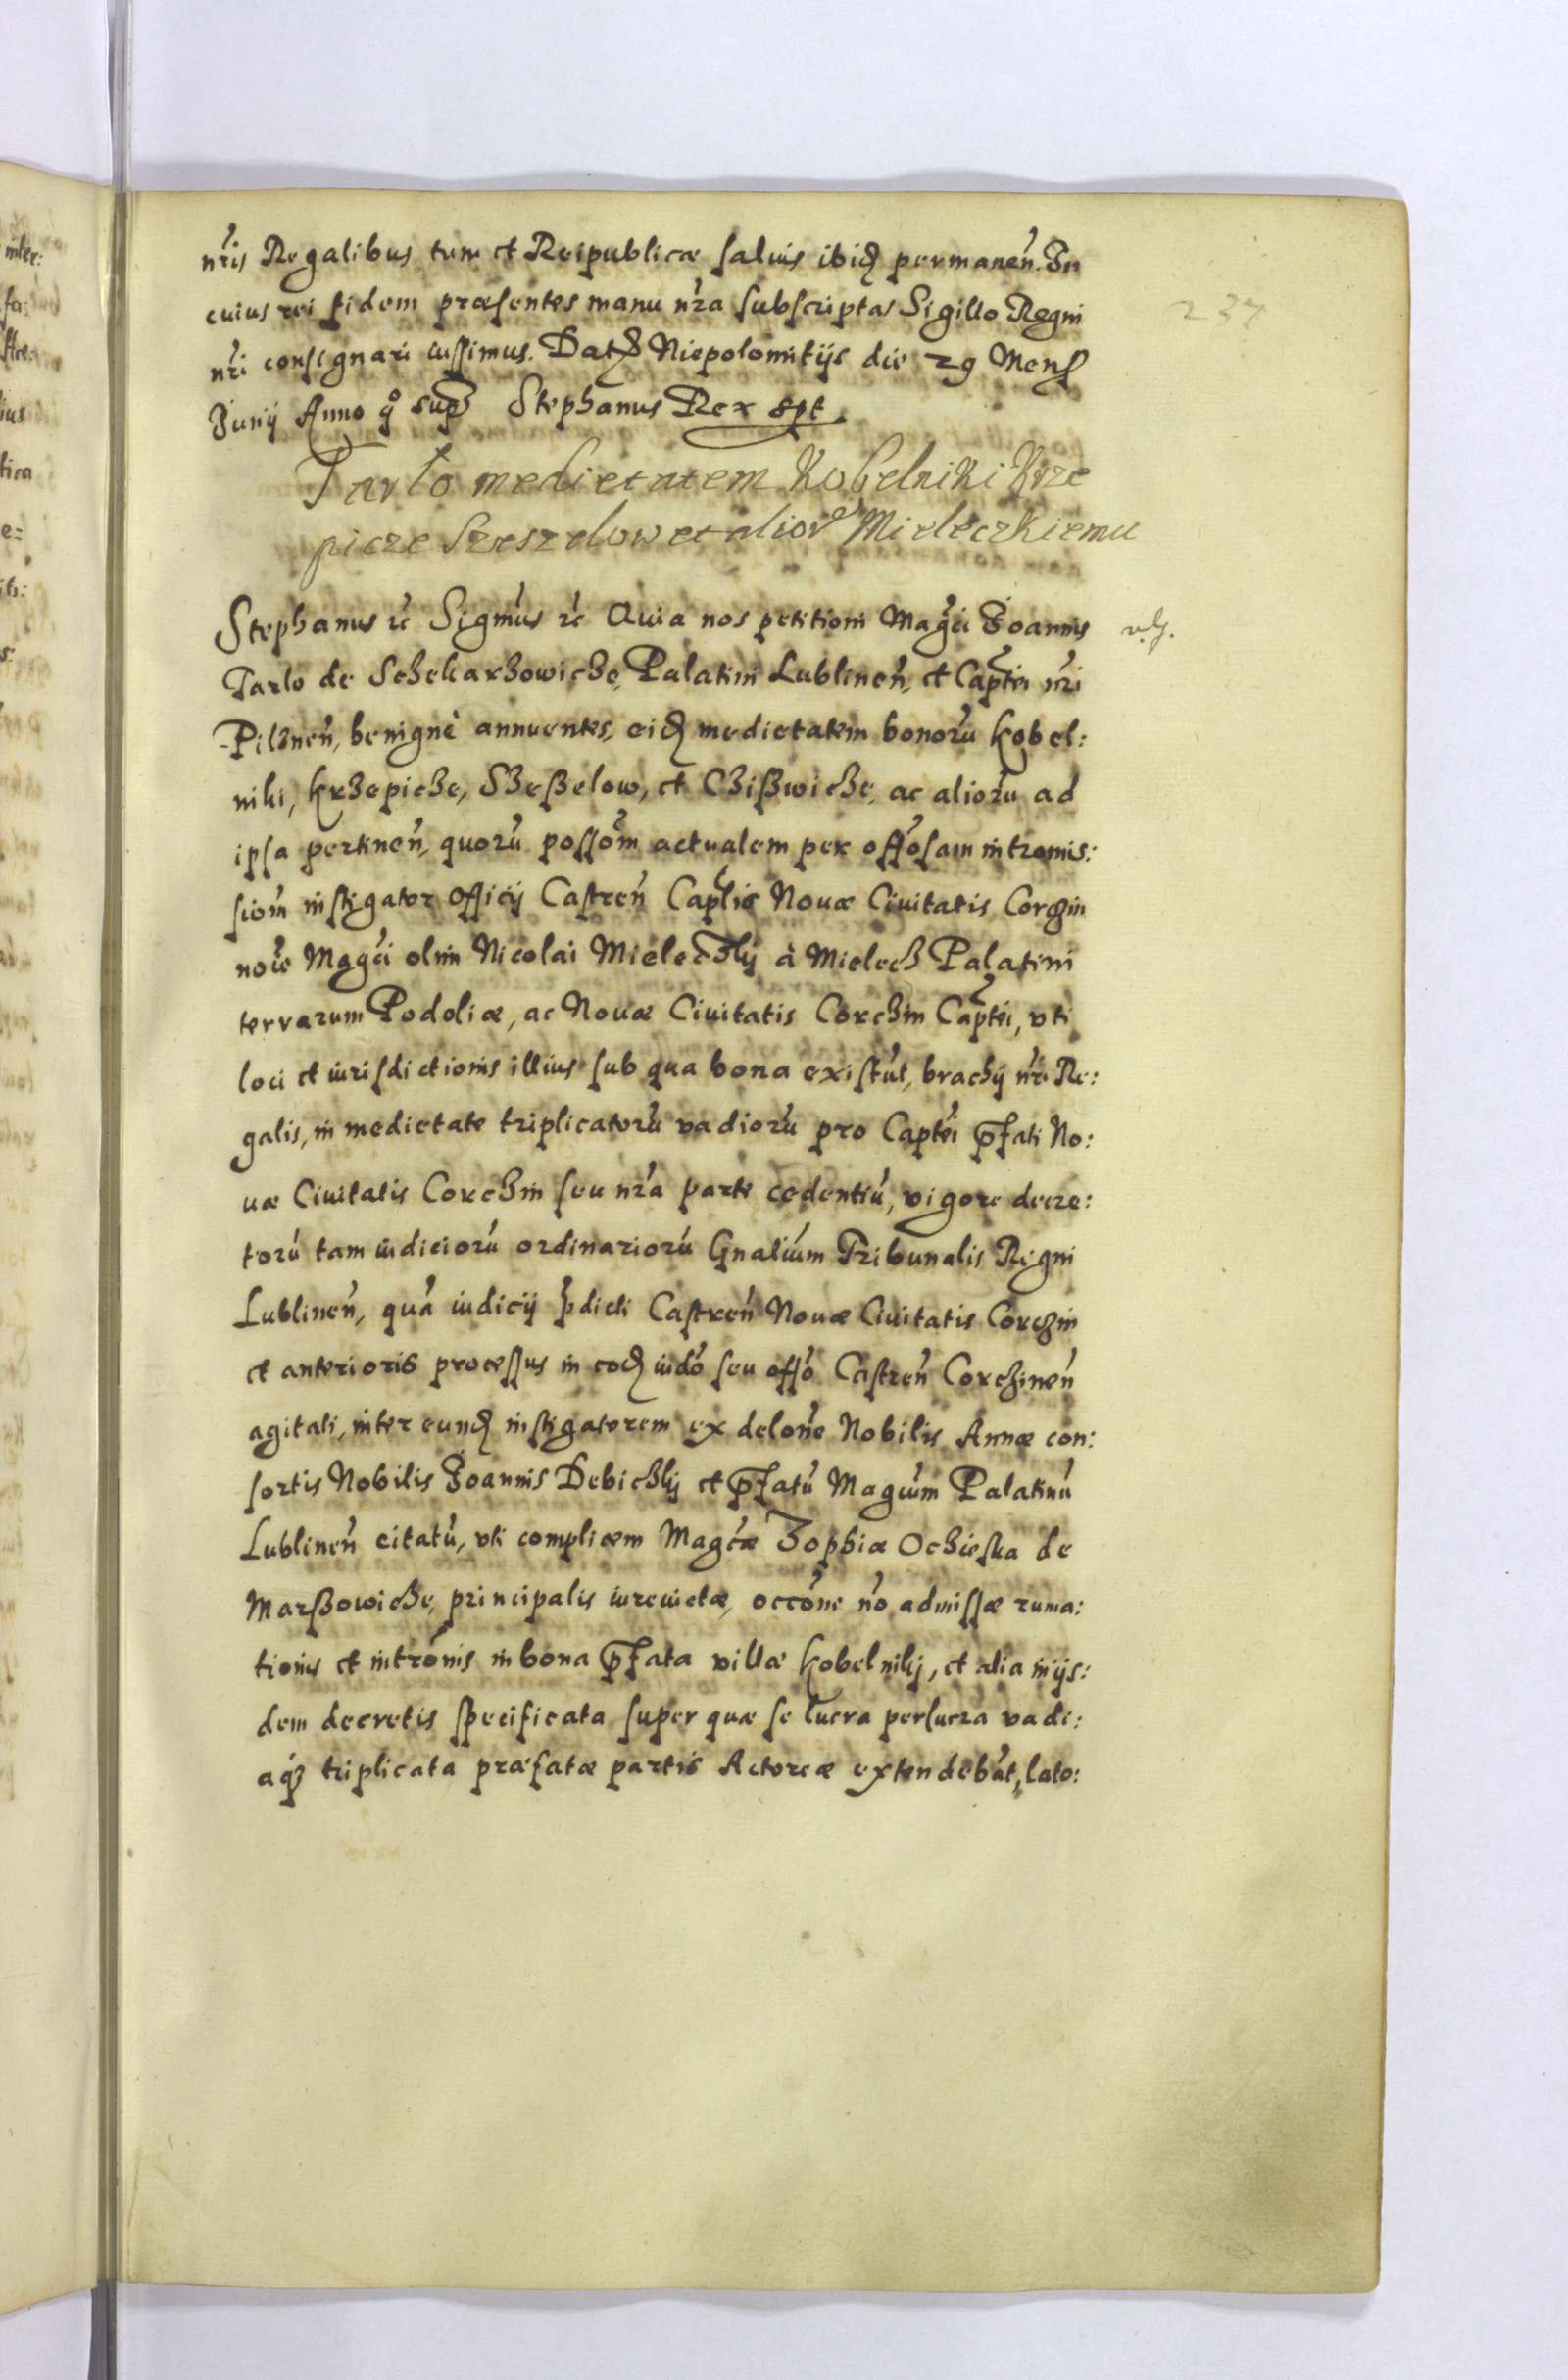 nr̃is Regalibus tum et Reipublicæ saluis ibid̃ permaneñ. In
cuius rei fidem præsentes manu nr̃a subscriptas Sigillo Regni
nr̃i consignari iussimus. Dat̃ Niepolomitijs die 29 Mens̃
Junij Anno q̊ sup̃ Stephanus Rex spt
Tarlo medietatem Kobelniki Krze
picze Szeszelow et alior̃ Mieleczkiemu
237
Stephanus rc̃ Sigm̃us rc̃ Quia nos petitioni Mag̃ci Joannis
Tarlo de Sczekarzowicze, Palatini Lublineñ, et Capt̃ei nr̃i
Pilzneñ, benignè annuentes, eid̃ medietatem bonorũ Kobel:
niki, Krzepicze, Szeßelow, et Czißwicze, ac aliorũ ad
ipsa pertineñ, quorũ possõm actualem per offõsam intromis:
siom̃ instigator officij Castreñ Capl̃is Nouæ Ciuitatis Corczin
noĩe Mag̃ci olim Nicolai Mieleczkij à Mielecz Palatini
terrarum Podoliæ, ac Nouæ Ciuitatis Corczin Capt̃ei, vti
loci et iurisdictionis illius sub qua bona existũt, brachij nr̃i Re:
galis, in medietate triplicatorũ vadiorũ pro Capt̃ei p̃fati No:
uæ Ciuitatis Corczin seu nr̃a parte cedentiũ, vigore decre:
torũ tam iudiciorũ ordinariorũ Gnaliũm Tribunalis Regni
Lublineñ, quã iudicij p̃dicti Castreñ Nouæ Ciuitatis Corczin
et anterioris processus in eod̃ iudõ seu offõ Castreñ Corczineñ
agitati, inter eund̃ instigatorem ex delõne Nobilis Annæ con:
sortis Nobilis Joannis Debiczkij et p̃fatũ Magcũm Palatinũ
Lublineñ citatũ, vti complicem Mag̃cæ Zophiæ Oczieska de
Marßowicze, principalis iureuictæ, occõne nõ admissæ ruma:
tionis et intrõnis in bona p̃fata villæ Kobelnikj, et alia in ijs:
dem decretis specificata super quæ se lucra perlucra vadi:
aq̃ triplicata præfatæ partis Actoreæ extendebãt, lato: